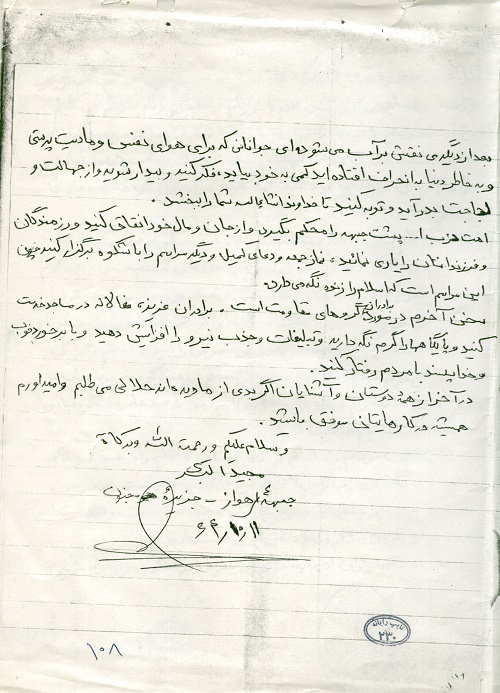 بعد از دیگر می نقشی بر آب می شود ای جوانانی که برای هوای نفس و مادیت پرستی
و به خاطر دنیا به انحراف افتاده اید کمی به خود بیایید فکر کنید و بیدار شوید و از جهالت و
لجاجت بدر آید و توبه کنید تا خداوند انشاءالله شما را ببخشد.
امت حزب ا... پشت جبهه را محکم بگیرید و از جان و مال خود انفاق کنید و رزمندگان
و فرزندانتان را یاری نمائید، نماز جمعه و دعای کمیل و دیگر مراسم را با شکوه برگزار کنید چون
این مراسم است که اسلام را زنده نگه می دارد.
سخن آخرم در مورد برادران گروهای مقاومت است. برادران عزیز، فعالانه در مساجد خدمت
کنید و پایگاهها را گرم نگه دارید و تبلیغات و جذب نیرو را افزایش دهید و با برخورد خوب
و خدا پسند با مردم رفتار کنید.
در آخر از همهٔ دوستان و آشنایان اگر بدی از ما دیده اند حلالی می طلبم و امیدوارم
همیشه در کارهایتان موفق باشید.
و سلام علیکم و رحمت الله و برکاة
مجید
جبههٔ اهواز - جزیرهٔ مجنون
۶۴/۱۰/۱۱
۲۳۰
۱۰۸